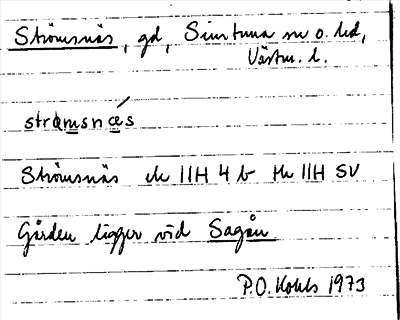 Strömsnäs, gd, Simtuna sn o. hd,
Västm. l.
strømsnǽs
Strömsnäs ek 11H 4 b tk 11H SV
Gården ligger vid Sagån
P.O. Kohls 1973